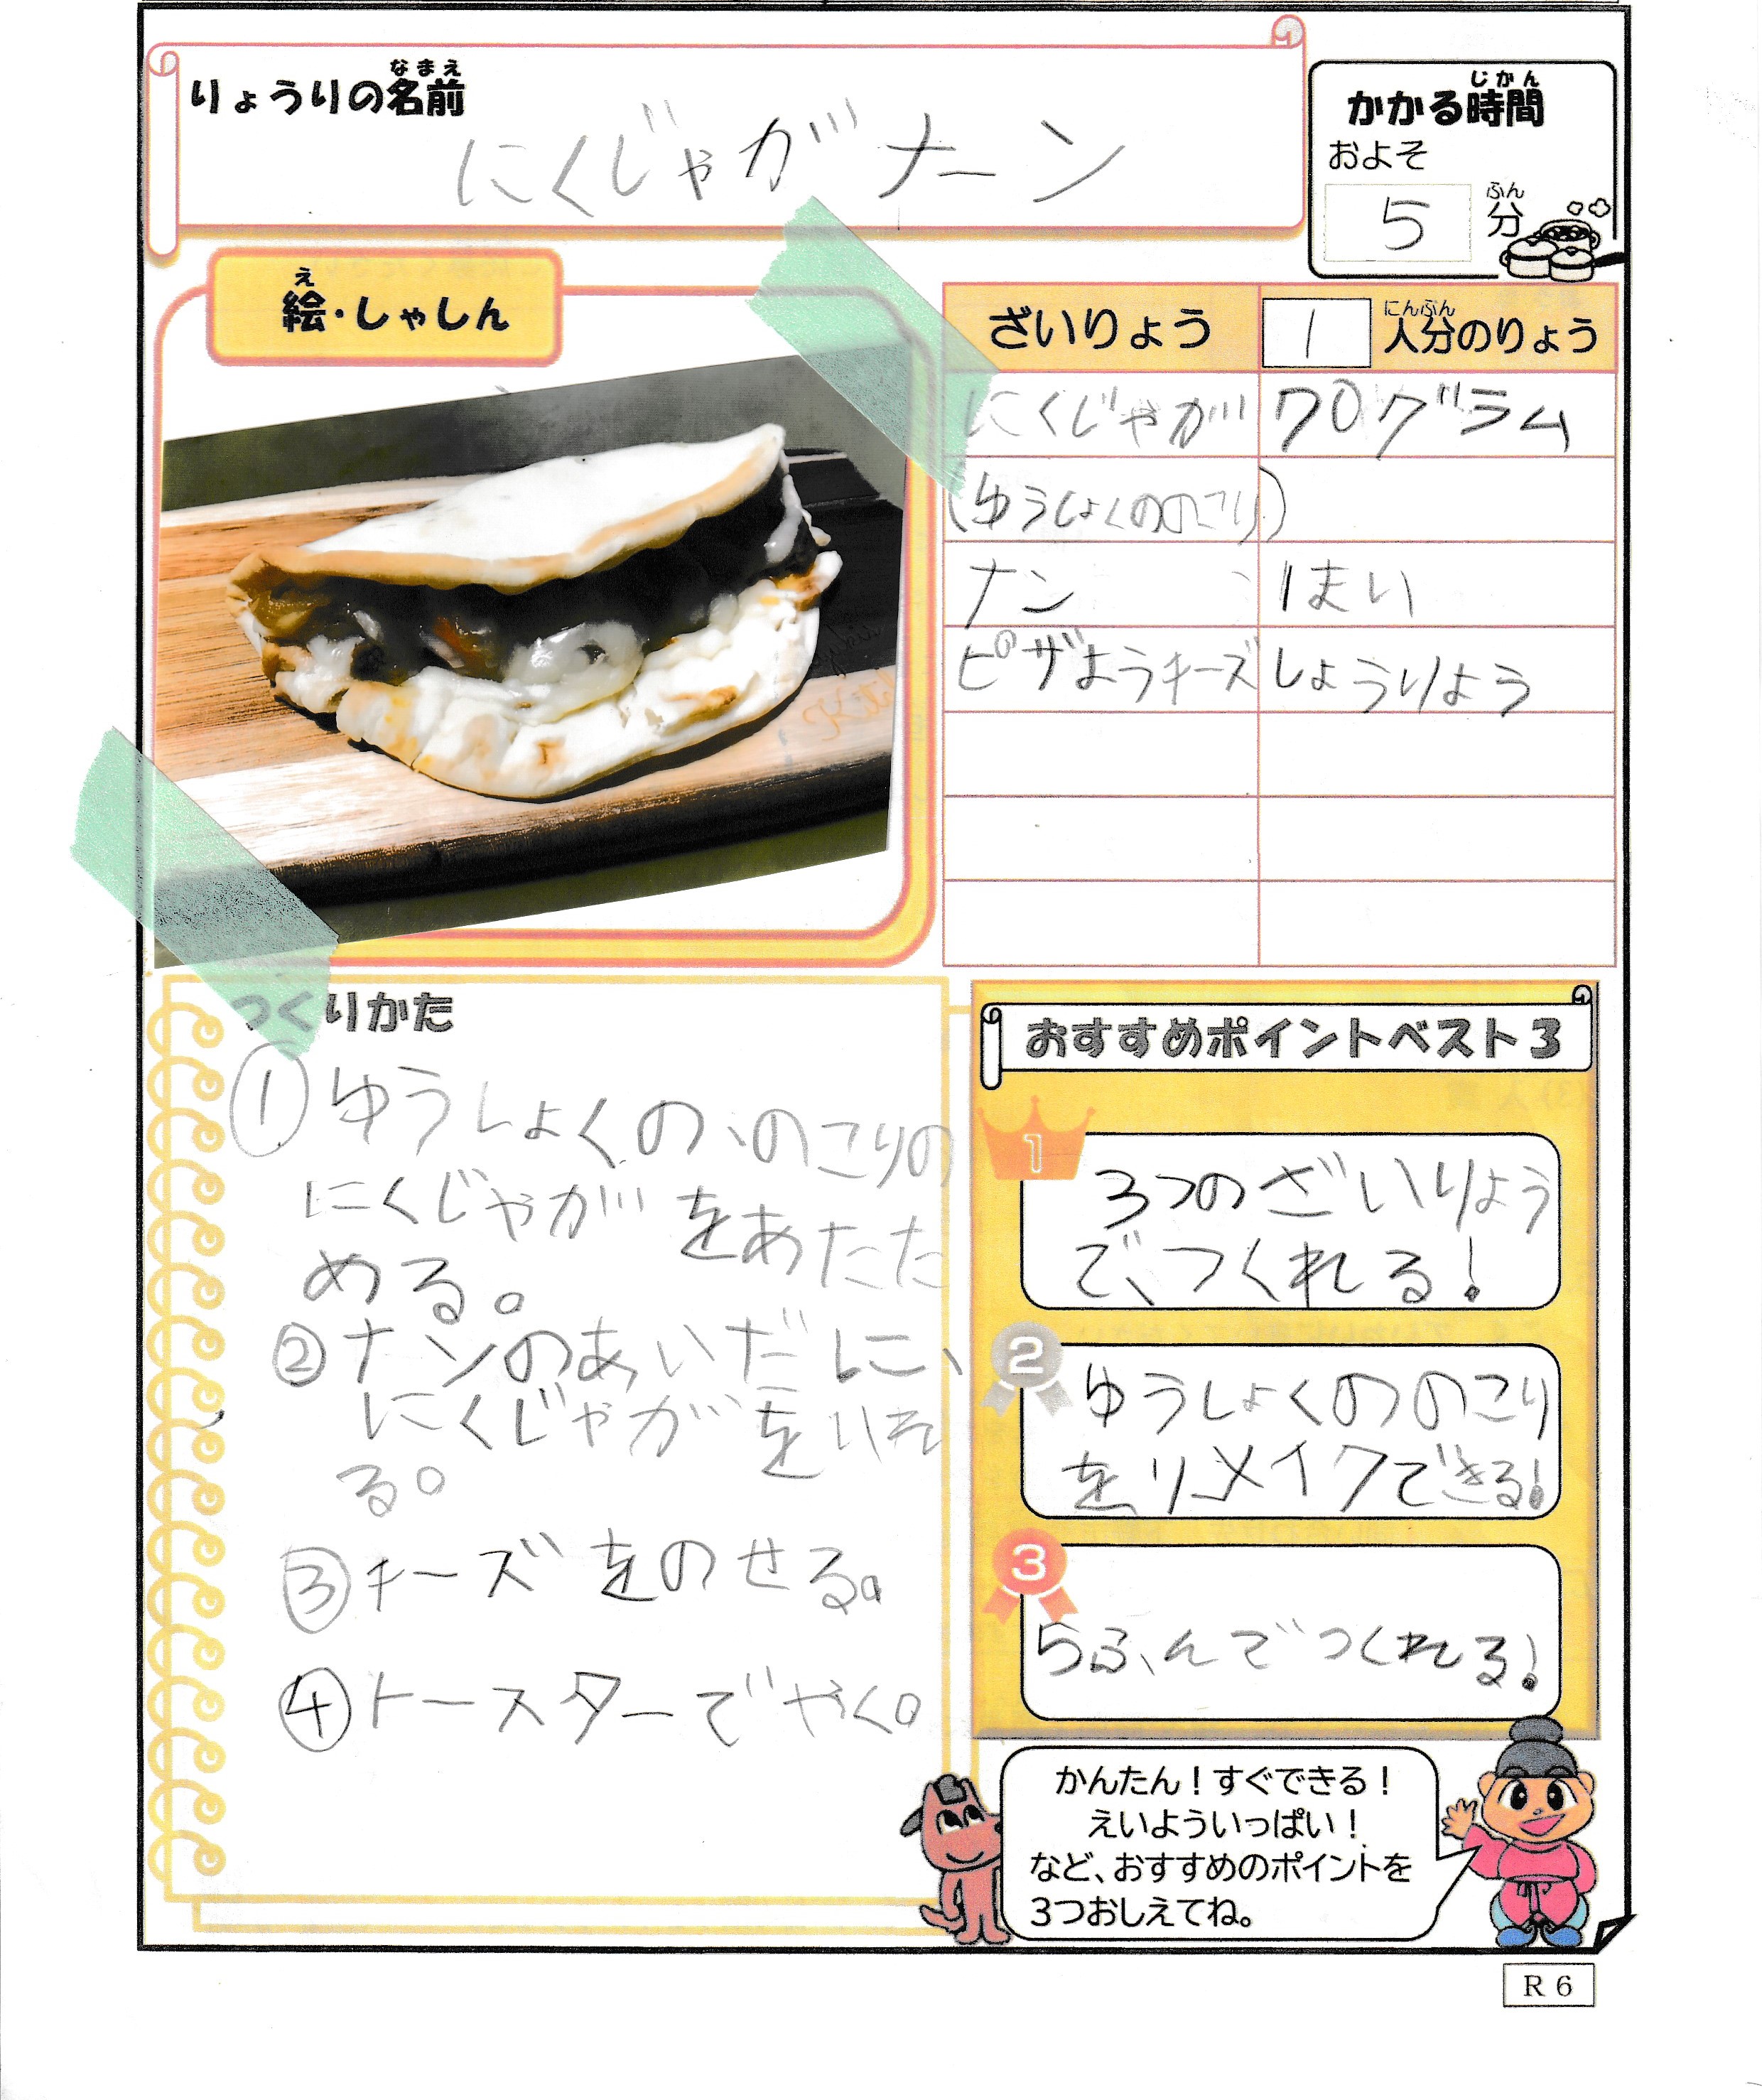 りょうりの名前
なまえ
にくじゃがナーン
かかる時間
じかん
およそ
5分
ふん
絵・しゃしん
え
ざいりょう 1人分のりょう
にんぶん
にくじゃが 70グラム
(ゆうしょくののこり)
ナン 1まい
ピザようチーズ しょうりょう
つくりかた
①ゆうしょくの、のこりの
にくじゃがをあたた
める。
②ナンのあいだに、
にくじゃがをいれ
る。
③チーズをのせる。
④トースターでやく。
おすすめポイントベスト3
1
3つのざいりょう
で、つくれる!
2
ゆうしょくののこり
を、リメイクできる!
3
5ふんでつくれる!
かんたん!すぐできる!
えいよういっぱい!
など、おすすめのポイントを
3つおしえてね。
R6